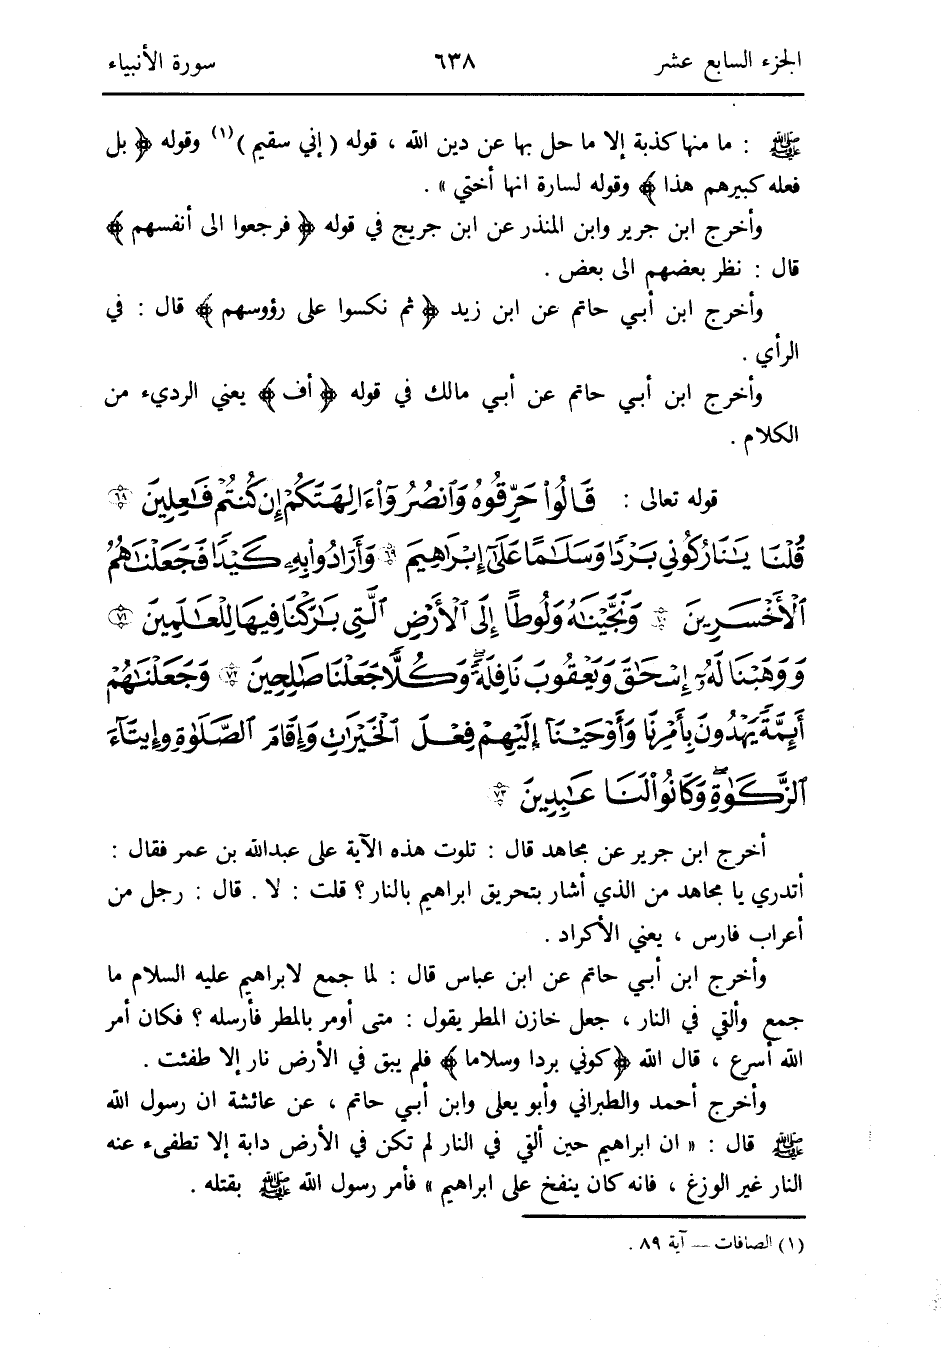 الجزء السابع عشر ٦٣٨ سورة الأنبياء
ﷺ : ما منها كذبة إلا ما حل بها عن دين الله ، قوله ( إني سقيم )(١) وقوله ﴿ بل
فعله كبيرهم هذا ﴾ وقوله لسارة انها أختي » .
وأخرج ابن جرير وابن المنذر عن ابن جريج في قوله ﴿ فرجعوا الى أنفسهم ﴾
قال : نظر بعضهم الى بعض .
وأخرج ابن أبي حاتم عن ابن زيد ﴿ ثم نكسوا على رؤوسهم ﴾ قال : في
الرأي .
وأخرج ابن أبي حاتم عن أبي مالك في قوله ﴿ أف ﴾ يعني الرديء من
الكلام .
قوله تعالى : قَالُوا۟ حَرِّقُوهُ وَٱنصُرُوٓا۟ ءَالِهَتَكُمْ إِن كُنتُمْ فَٰعِلِينَ ٦٨
قُلْنَا يَٰنَارُ كُونِى بَرْدًا وَسَلَٰمًا عَلَىٰٓ إِبْرَٰهِيمَ ٦٩ وَأَرَادُوا۟ بِهِۦ كَيْدًا فَجَعَلْنَٰهُمُ
ٱلْأَخْسَرِينَ ٧٠ وَنَجَّيْنَٰهُ وَلُوطًا إِلَى ٱلْأَرْضِ ٱلَّتِى بَٰرَكْنَا فِيهَا لِلْعَٰلَمِينَ ٧١
وَوَهَبْنَا لَهُۥٓ إِسْحَٰقَ وَيَعْقُوبَ نَافِلَةً ۖ وَكُلًّا جَعَلْنَا صَٰلِحِينَ ٧٢ وَجَعَلْنَٰهُمْ
أَئِمَّةً يَهْدُونَ بِأَمْرِنَا وَأَوْحَيْنَآ إِلَيْهِمْ فِعْلَ ٱلْخَيْرَٰتِ وَإِقَامَ ٱلصَّلَوٰةِ وَإِيتَآءَ
ٱلزَّكَوٰةِ ۖ وَكَانُوا۟ لَنَا عَٰبِدِينَ ٧٣
أخرج ابن جرير عن مجاهد قال : تلوت هذه الآية على عبدالله بن عمر فقال :
أتدري يا مجاهد من الذي أشار بتحريق ابراهيم بالنار ؟ قلت : لا . قال : رجل من
أعراب فارس ، يعني الأكراد .
وأخرج ابن أبي حاتم عن ابن عباس قال : لما جمع لابراهيم عليه السلام ما
جمع وألقي في النار ، جعل خازن المطر يقول : متى أومر بالمطر فأرسله ؟ فكان أمر
الله أسرع ، قال الله ﴿ كوني بردا وسلاما ﴾ فلم يبق في الأرض نار إلا طفئت .
وأخرج أحمد والطبراني وأبو يعلى وابن أبي حاتم ، عن عائشة ان رسول الله
ﷺ قال : « ان ابراهيم حين ألقي في النار لم تكن في الأرض دابة إلا تطفىء عنه
النار غير الوزغ ، فانه كان ينفخ على ابراهيم » فأمر رسول الله ﷺ بقتله .
(١) الصافات — آية ٨٩ .